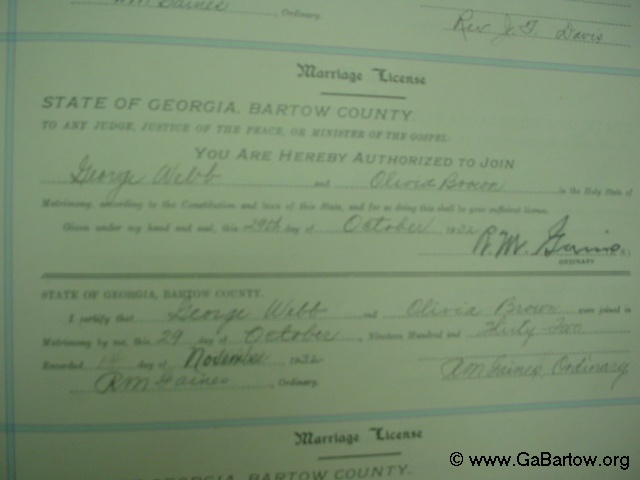 RM Gaines, Ordinary.
Rev J. T. Davis
Marriage License
STATE OF GEORGIA, BARTOW COUNTY.
TO ANY JUDGE, JUSTICE OF THE PEACE, OR MINISTER OF THE GOSPEL:
YOU ARE HEREBY AUTHORIZED TO JOIN
George Webb and Olivia Brown in the Holy State of
Matrimony, according to the Constitution and laws of this State, and for so doing this shall be your sufficient license.
Given under my hand and seal, this 29th day of October 1932
R. M. Gaines
ORDINARY
STATE OF GEORGIA, BARTOW COUNTY.
I certify that George Webb and Olivia Brown were joined in
Matrimony by me, this 29 day of October, Nineteen Hundred and Thirty-Two
Recorded day of November 1932
RM Gaines, Ordinary.
RM Gaines, Ordinary
Marriage License
OF GEORGIA, BARTOW COUNTY.
© www.GaBartow.org